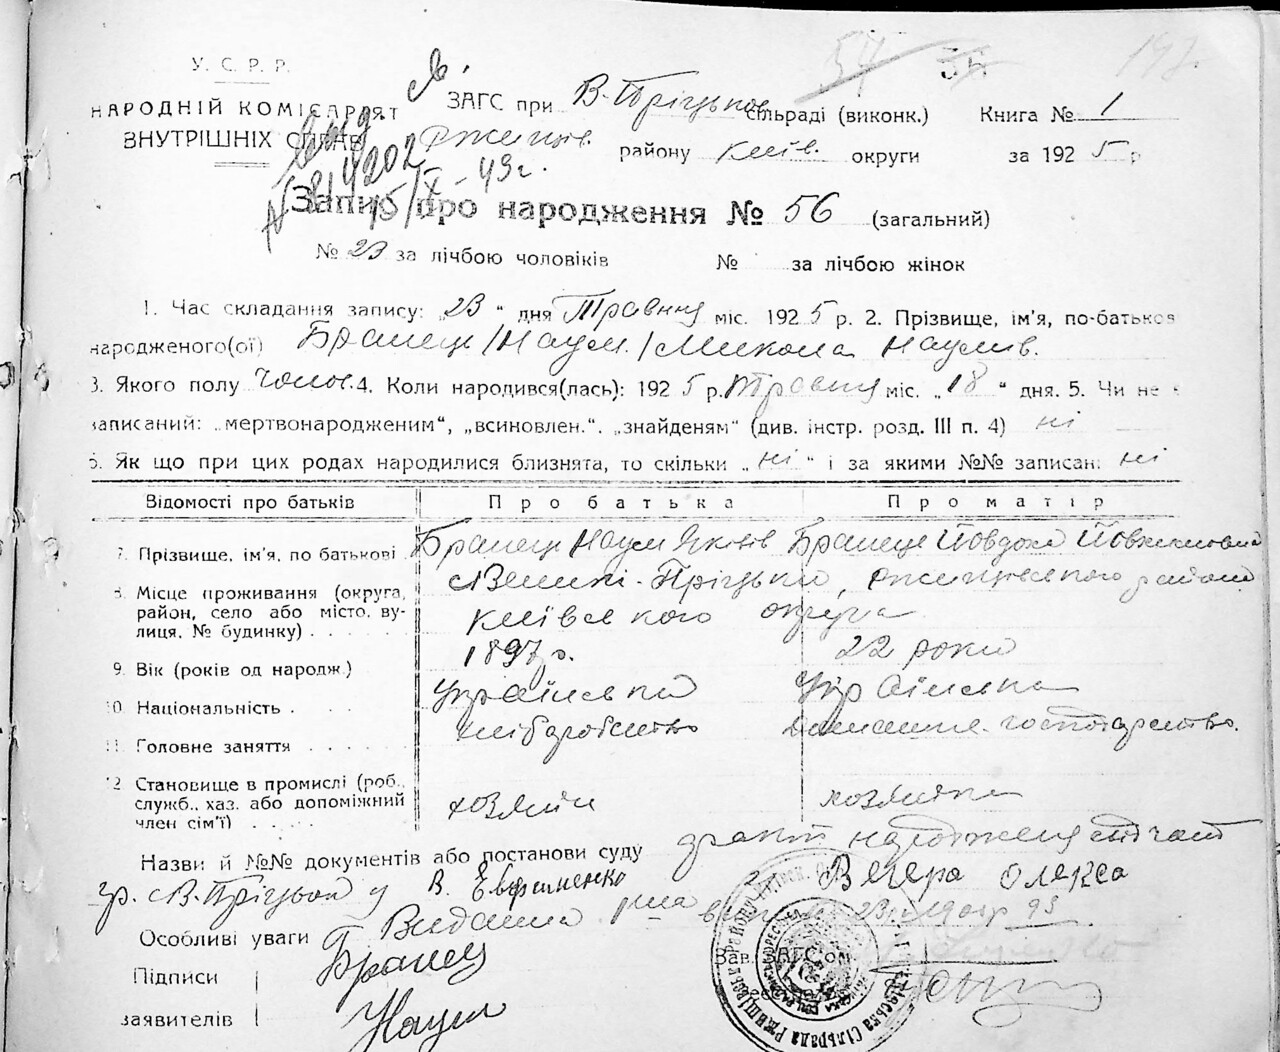 У. С. Р. Р.
НАРОДНІЙ КОМІСАРІЯТ
ВНУТРІШНІХ СПРАВ
54 36 197.
ЗАГС при В-Пріцьков сільраді (виконк.) Книга № 1
Ржищів. району Київ. округи за 1925 р
15/X-43г.
Запис про народження № 56 (загальний)
№ 23 за лічбою чоловіків № за лічбою жінок
1. Час складання запису: „23" дня Травня міс. 1925 р. 2. Прізвище, ім'я, по-батькові
народженого(ої) Бранец /Наум./ Микола Наумів.
3. Якого полу чолов. 4. Коли народився(лась): 1925 р. Травня міс. „18" дня. 5. Чи не є
записаний: „мертвонародженим", „всиновлен.". „знайденям" (див. інстр. розд. III п. 4) ні
6. Як що при цих родах народилися близнята, то скільки „ні" і за якими №№ записан: ні
Відомості про батьків Про батька Про матір
7. Прізвище, ім'я, по батькові Бранец Наум Яковів Бранец Йовдоха
8. Місце проживання (округа, район, село або місто, вулиця, № будинку) с Великі-Пріцьки, Ржищівського району
Київського округа
9. Вік (років од народж.) 1897 р. 22 роки
10. Національність Українська Українська
11. Головне заняття хліборобство Домашнє господарство.
12. Становище в промислі (роб., служб., хаз. або допоміжний член сім'ї) хозяїн хозяйка
Назви й №№ документів або постанови суду
гр. с В. Пріцьок В. Евфименко Вегера Олекса
Особливі уваги Видана
Підписи Бранец
заявителів Наум
Зав. ЗАГС'ом